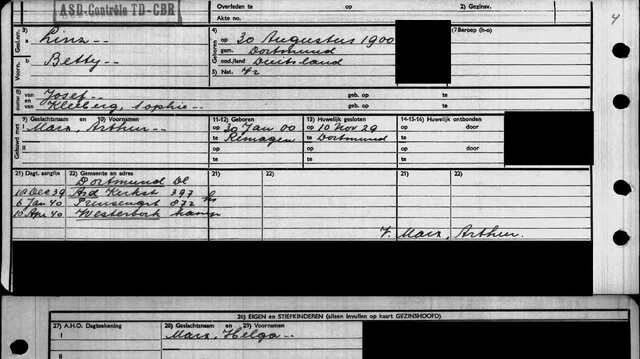 ASD-Contrôle TD-CBR
Overleden te op 2) Gezinsv.
Akte no.
4
3) Linz -- 4) op 30 Augustus 1900 7) Beroep (h-o)
Gesln. Geboren gem. Dortmund
Voorn. Betty -- oud./land Duitsland
5) Nat. 42
van Josef -- geb. op te
en Kleeberg, Sophie -- geb. op te
9) Geslachtsnaam en 10) Voornamen 11-12) Geboren 13) Huwelijk gesloten 14-15-16) Huwelijk ontbonden
Gehuwd met 1 Marx, Arthur -- op 30 Jan 00 op 10 Nov 29 op door
te Remagen te Dortmund te
op op op door
te te te
21) Dagt. aangifte 22) Gemeente en adres 21) 22) 21) 22)
Dortmund Dl
Kerkst 397 hs
6 Jan 40 Prinsengrt 872
10 Apr 40 Westerbork kamp
V. Marx, Arthur.
26) EIGEN en STIEFKINDEREN (alleen invullen op kaart GEZINSHOOFD)
27) A.H.O. Dagtekening 28) Geslachtsnaam en 29) Voornamen
1 Marx, Helga --